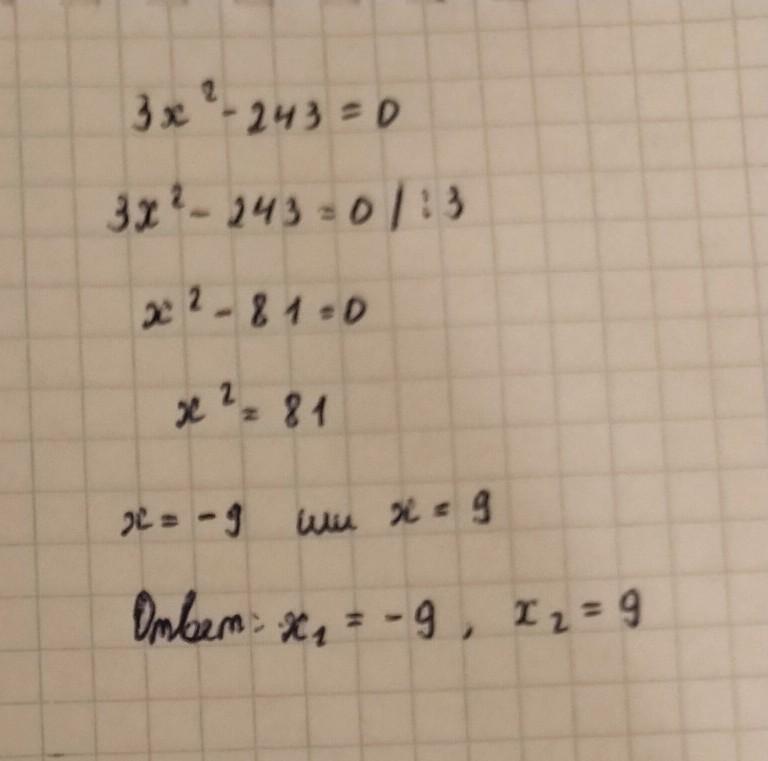 3x² - 243 = 0
3x² - 243 = 0 | : 3
x² - 81 = 0
x² = 81
x = -9 или x = 9
Ответ: x₁ = -9, x₂ = 9